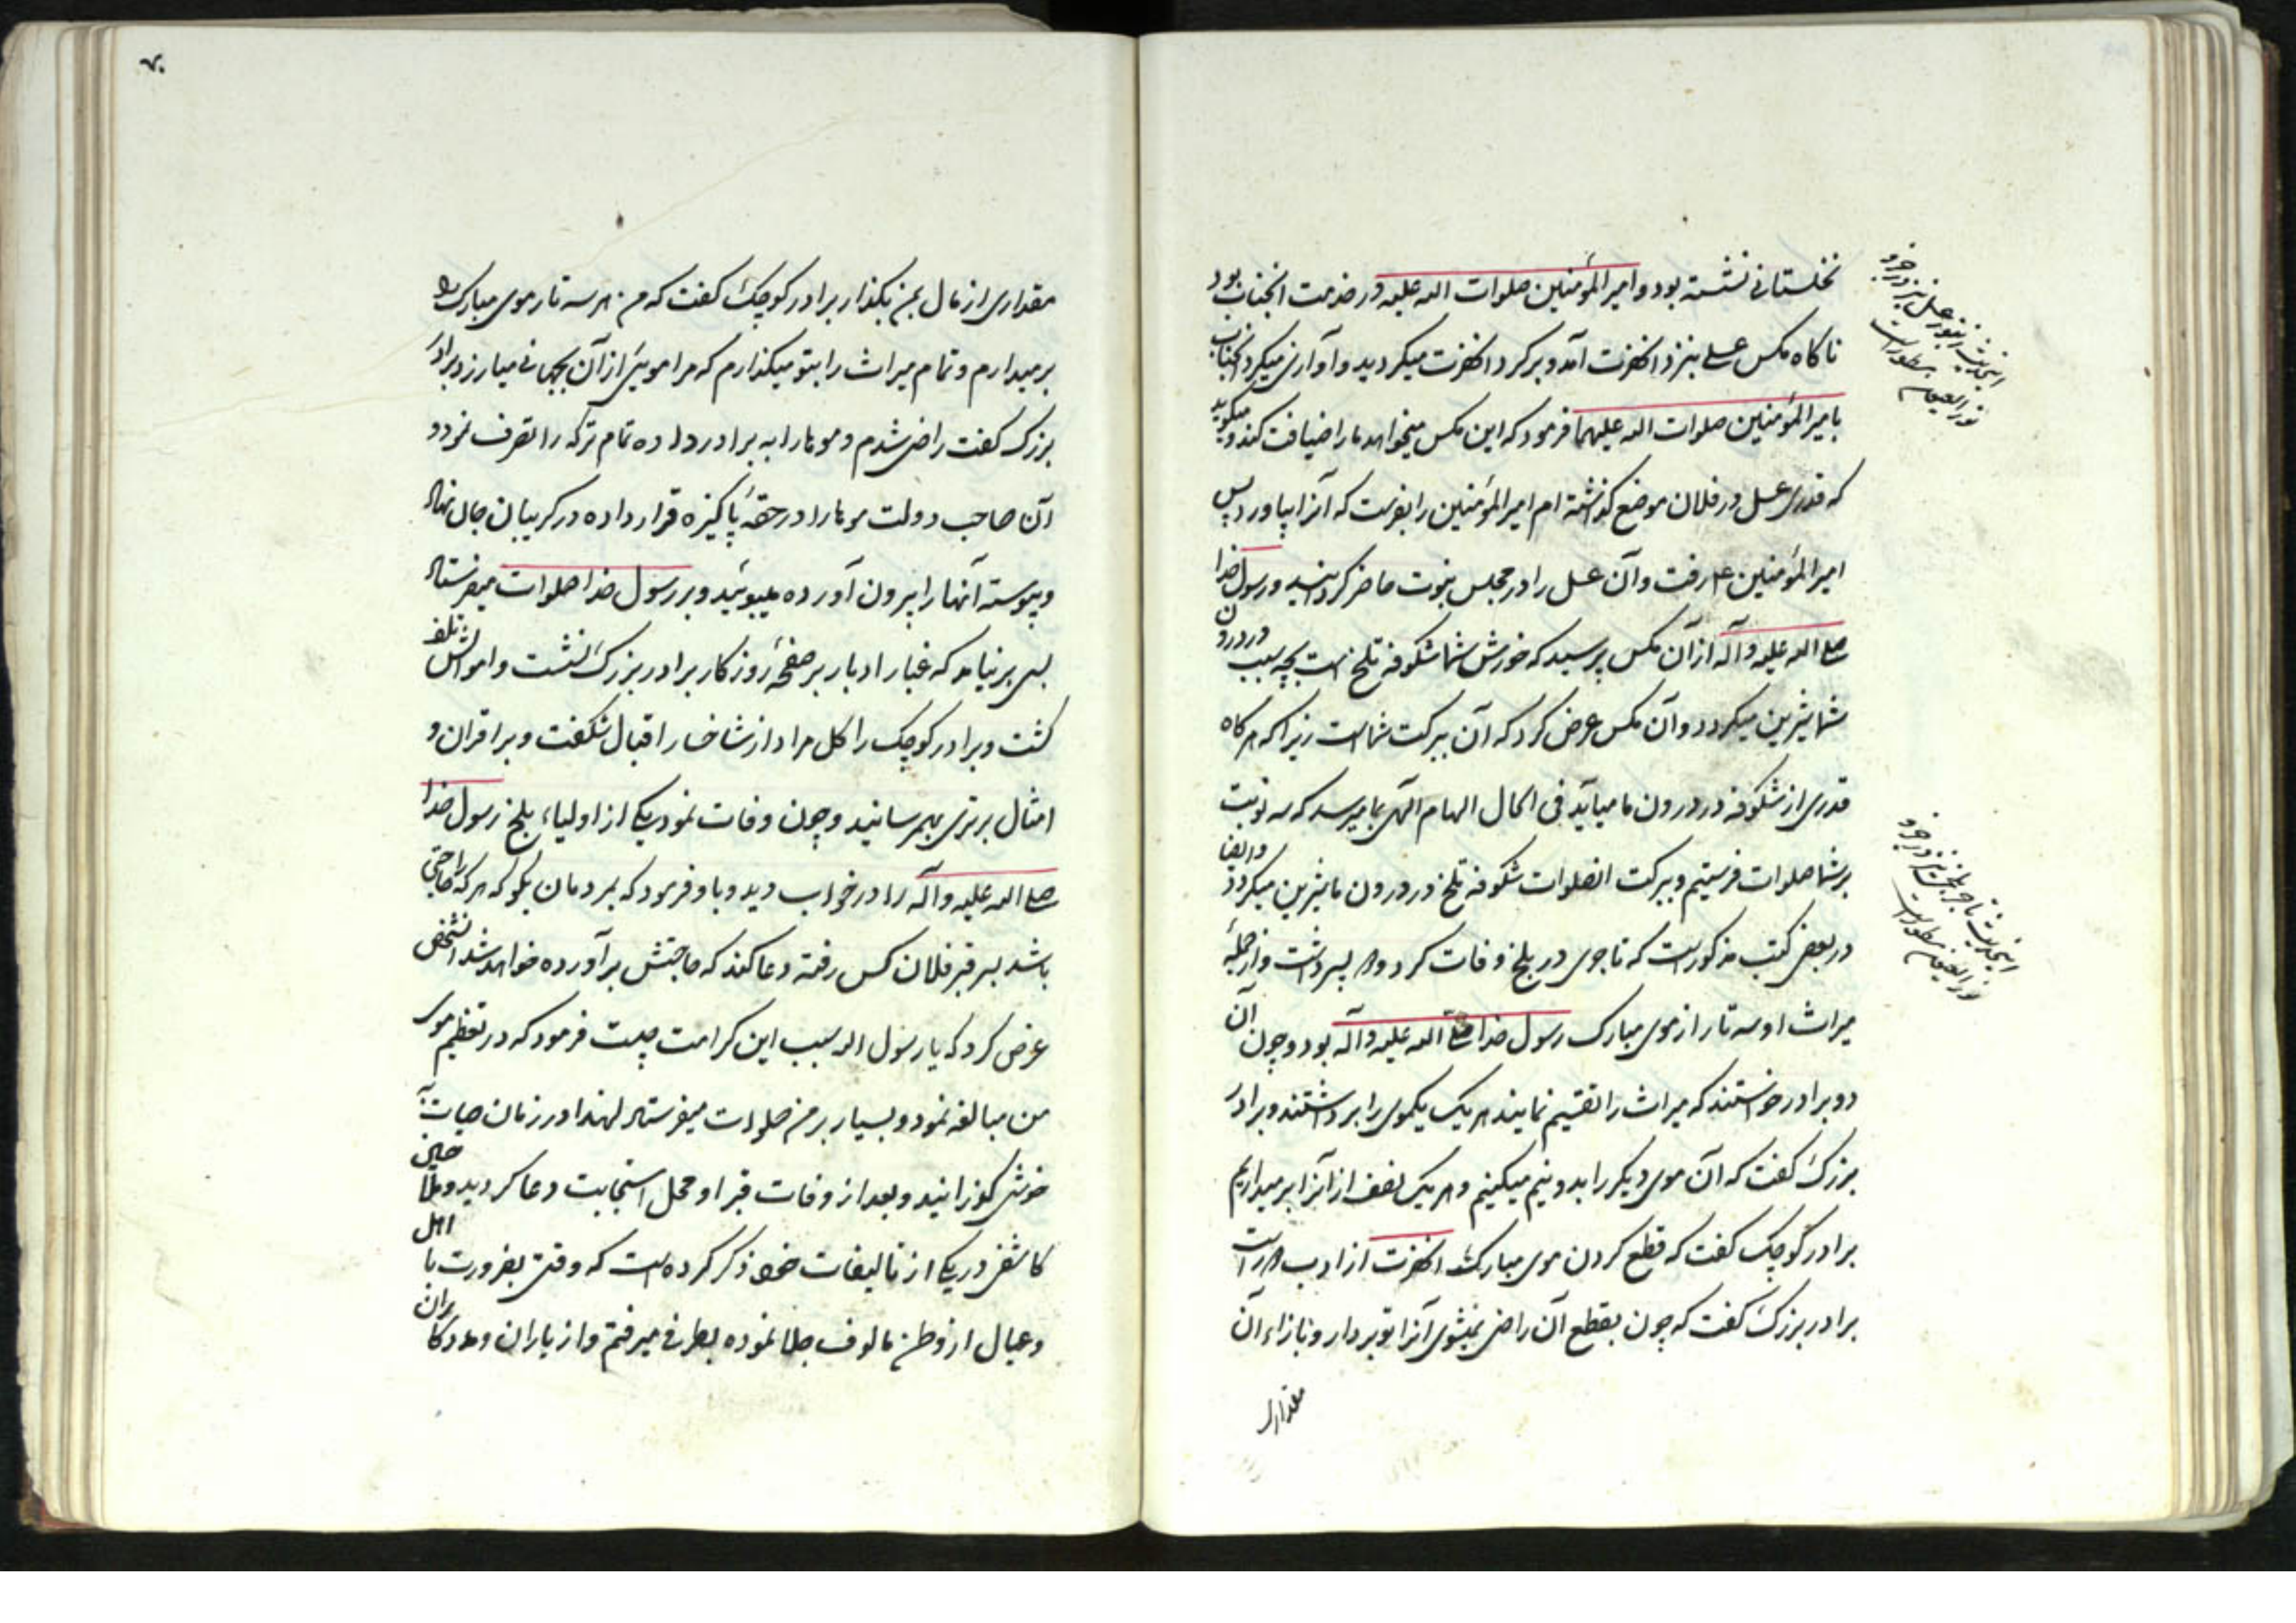 نخلستانی نشسته بود و امیر المؤمنین صلوات الله علیه در خدمت آنجناب بود
ناکاه مکس عسلی بنزد آنحضرت آمد و بر کرد آنحضرت میکردید و آوازی میکرد آنجناب
بامیر المؤمنین صلوات الله علیهما فرمود که این مکس میخواهد ما را ضیافت کند و میکوید
که قدری عسل در فلان موضع کذاشته ام امیر المؤمنین را بفرست که آنرا بیاورد پس
امیر المؤمنین ع رفت و آن عسل را در مجلس نبوت حاضر کردانید و رسول خدا
صلی الله علیه و آله از آن مکس پرسید که خورش شما شکوفه تلخ است بچه سبب در درون
شما شیرین میکردد و آن مکس عرض کرد که آن ببرکت شما است زیرا که هر کاه
قدری از شکوفه در درون ما میآید فی الحال الهام الهی بما میرسد که سه نوبت
بر شما صلوات فرستیم و ببرکت انصلوات شکوفه تلخ در درون ما شیرین میکردد و ایضا
در بعض کتب مذکور است که تاجری در بلخ وفات کرد و دو پسر داشت و از جمله
میراث او سه تار از موی مبارک رسول خدا صلی الله علیه و آله بود و چون آن
دو برادر خواستند که میراث را تقسیم نمایند هر یک یکموی را برداشتند و برادر
بزرک کفت که آن موی دیکر را بدو نیم میکنیم و هر یک نصف از آنرا بر میداریم
برادر کوچک کفت که قطع کردن موی مبارک آنحضرت از ادب دور است
برادر بزرک کفت که چون بقطع آن راضی نمیشوی آنرا تو بردار و بازاء آن
مقداری
اینحدیث
نیز در جزو
نور العیون مسطور است
اینحدیث تاجر بلخ نیز در جزو
نور العیون مسطور است
۷۰
مقداری از مال بمن بکذار برادر کوچک کفت که من هر سه تار موی مبارک را
بر میدارم و تمام میراث را بتو میکذارم که مرا موئی از آن بجهانی میارزد برادر
بزرک کفت راضی شدم و موها را به برادر داده تمام ترکه را تصرف نمود و
آن صاحب دولت موها را در حقهٔ پاکیزه قرار داده در کریبان جان نهاد
و پیوسته آنها را بیرون آورده میبوئید و بر رسول خدا صلوات میفرستاد
بسی بر نیامد که غبار ادبار بر صفحهٔ روزکار برادر بزرک نشست و اموالش تلف
کشت و برادر کوچک را کل مراد از شاخسار اقبال شکفت و بر اقران و
امثال برتری بهمرسانید و چون وفات نمود یکی از اولیاء بلخ رسول خدا
صلی الله علیه و آله را در خواب دید و باو فرمود که بمردمان بکو که هر که را حاجتی
باشد بسر قبر فلان کس رفته دعا کند که حاجتش برآورده خواهد شد انشخص
عرض کرد که یا رسول الله سبب این کرامت چیست فرمود که در تعظیم موی
من مبالغه نمود و بسیار بر من صلوات میفرستاد لهذا در زمان حیات
خوش کوزرانید و بعد از وفات قبر او محل استجابت دعا کردید و ملا حسین
کاشفی در یکی از تالیفات خود ذکر کرده است که وقتی بضرورت با اهل
و عیال از وطن مالوف جلا نموده بطرفی میرفتم و از یاران و مددکاران